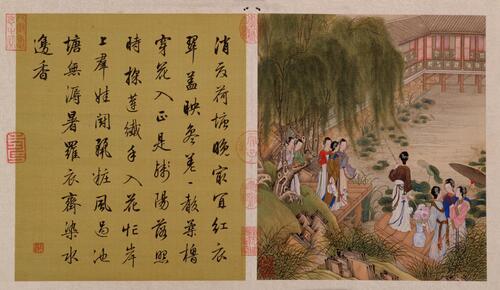 消夏荷塘晚最宜紅衣
翠蓋映參差一聲柔櫓
穿花入正是殘陽落照
時採蓮纖手入花忙岸
上群娃鬪靚粧風過池
塘無溽暑羅衣齊染水
邊香